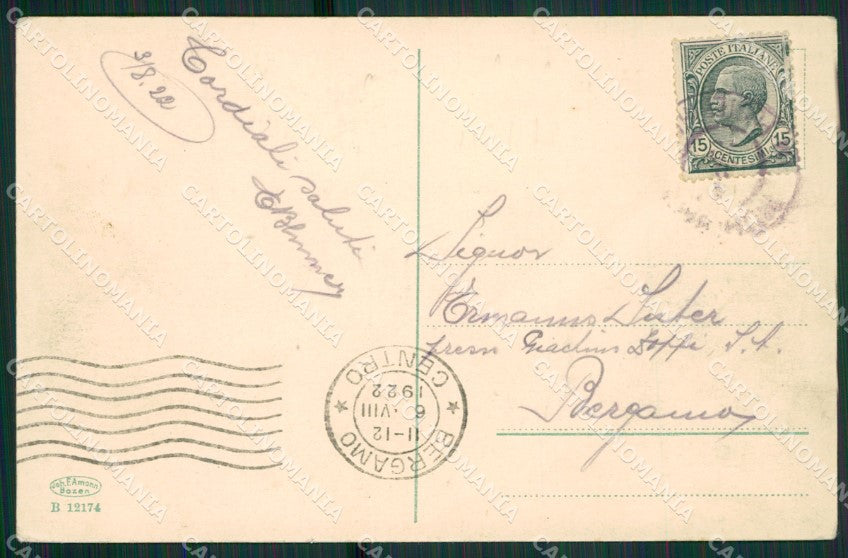 3/8.22
Cordiali saluti
POSTE ITALIANE
15 CENTESIMI 15
Signor
Ermanno Suter
presso Gioachino Zoppi S.A.
Bergamo
BERGAMO
CENTRO
11-12
6.VIII
1922
Joh. F. Amonn
Bozen
B 12174
CARTOLINOMANIA